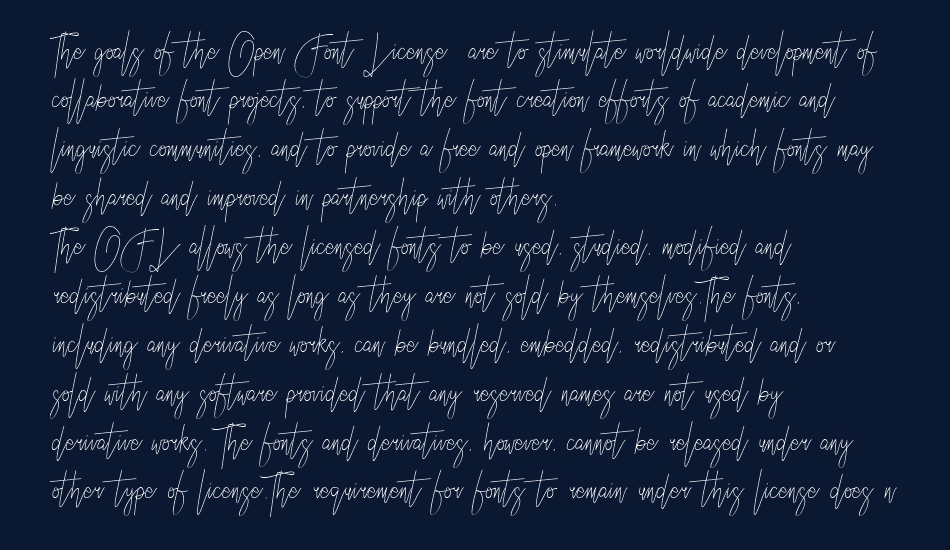 The goals of the Open Font License are to stimulate worldwide development of
collaborative font projects, to support the font creation efforts of academic and
linguistic communities, and to provide a free and open framework in which fonts may
be shared and improved in partnership with others.
The OFL allows the licensed fonts to be used, studied, modified and
redistributed freely as long as they are not sold by themselves.The fonts,
including any derivative works, can be bundled, embedded, redistributed and or
sold with any software provided that any reserved names are not used by
derivative works. The fonts and derivatives, however, cannot be released under any
other type of license.The requirement for fonts to remain under this license does n